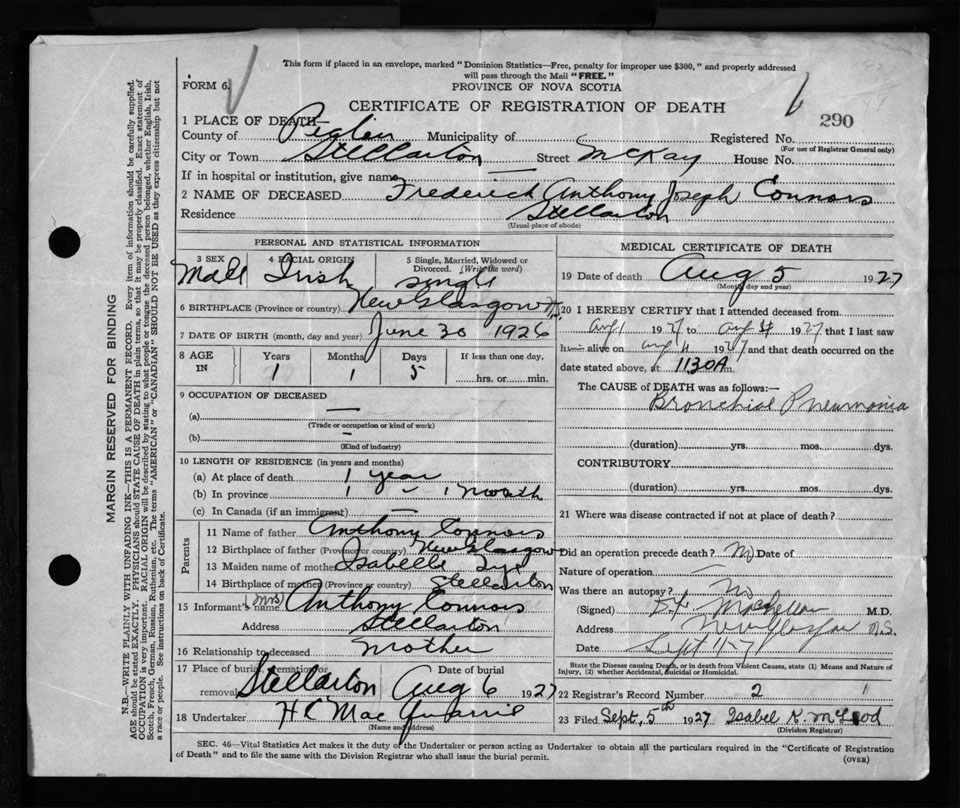 This form if placed in an envelope, marked "Dominion Statistics—Free, penalty for improper use $300," and properly addressed
will pass through the Mail "FREE."
FORM 6.
PROVINCE OF NOVA SCOTIA
CERTIFICATE OF REGISTRATION OF DEATH
290
1 PLACE OF DEATH—
County of Municipality of Registered No.
(For use of Registrar General only)
City or Town Stellarton Street McKay House No.
If in hospital or institution, give name —
2 NAME OF DECEASED Frederick Anthony Joseph Connors
Residence Stellarton
(Usual place of abode)
PERSONAL AND STATISTICAL INFORMATION
3 SEX 4 RACIAL ORIGIN 5 Single, Married, Widowed or Divorced. (Write the word)
Male Irish single
6 BIRTHPLACE (Province or country) New Glasgow N.S.
7 DATE OF BIRTH (month, day and year) June 30 1926
8 AGE IN Years Months Days If less than one day,
1 1 5 hrs. or min.
9 OCCUPATION OF DECEASED
(a) —
(Trade or occupation or kind of work)
(b) —
(Kind of industry)
10 LENGTH OF RESIDENCE (in years and months)
(a) At place of death 1 year
(b) In province 1 – 1 month
(c) In Canada (if an immigrant)
Parents
11 Name of father Anthony Connors
12 Birthplace of father (Province or country) New Glasgow
13 Maiden name of mother Isabelle
14 Birthplace of mother (Province or country) Stellarton
15 Informant's name (Mrs) Anthony Connors
Address Stellarton
16 Relationship to deceased mother
17 Place of burial, cremation or removal Stellarton Date of burial Aug 6 1927
18 Undertaker H C Mac Quarrie
(Name and address)
MEDICAL CERTIFICATE OF DEATH
19 Date of death Aug 5 1927
(Month, day and year)
20 I HEREBY CERTIFY that I attended deceased from
Aug 1 1927 to Aug 1927 that I last saw
him alive on Aug 1927 and that death occurred on the
date stated above, at 1130 A m.
The CAUSE of DEATH was as follows:—
Bronchial Pneumonia
(duration) yrs. mos. dys.
CONTRIBUTORY
(duration) yrs. mos. dys.
21 Where was disease contracted if not at place of death?
Did an operation precede death? No Date of
Nature of operation
Was there an autopsy? No
(Signed) MacLellan M.D.
Address New Glasgow N.S.
Date Sept
State the Disease causing Death, or in death from Violent Causes, state (1) Means and Nature of
Injury, (2) whether Accidental, Suicidal or Homicidal.
22 Registrar's Record Number 2
23 Filed Sept. 5th 1927 Isabel K. McLeod
(Division Registrar)
SEC. 46—Vital Statistics Act makes it the duty of the Undertaker or person acting as Undertaker to obtain all the particulars required in the "Certificate of Registration
of Death" and to file the same with the Division Registrar who shall issue the burial permit.
(OVER)
MARGIN RESERVED FOR BINDING
N.B.—WRITE PLAINLY WITH UNFADING INK—THIS IS A PERMANENT RECORD. Every item of information should be carefully supplied.
AGE should be stated EXACTLY. PHYSICIANS should STATE CAUSE OF DEATH in plain terms, so that it may be properly classified. Exact statement of
OCCUPATION is very important. RACIAL ORIGIN will be described by stating to what people or tongue the deceased person belonged, whether English, Irish,
Scotch, French, German, Russian, Ruthenian, etc. The terms "AMERICAN" or "CANADIAN" SHOULD NOT BE USED as they express citizenship but not
a race or people. See instructions on back of Certificate.